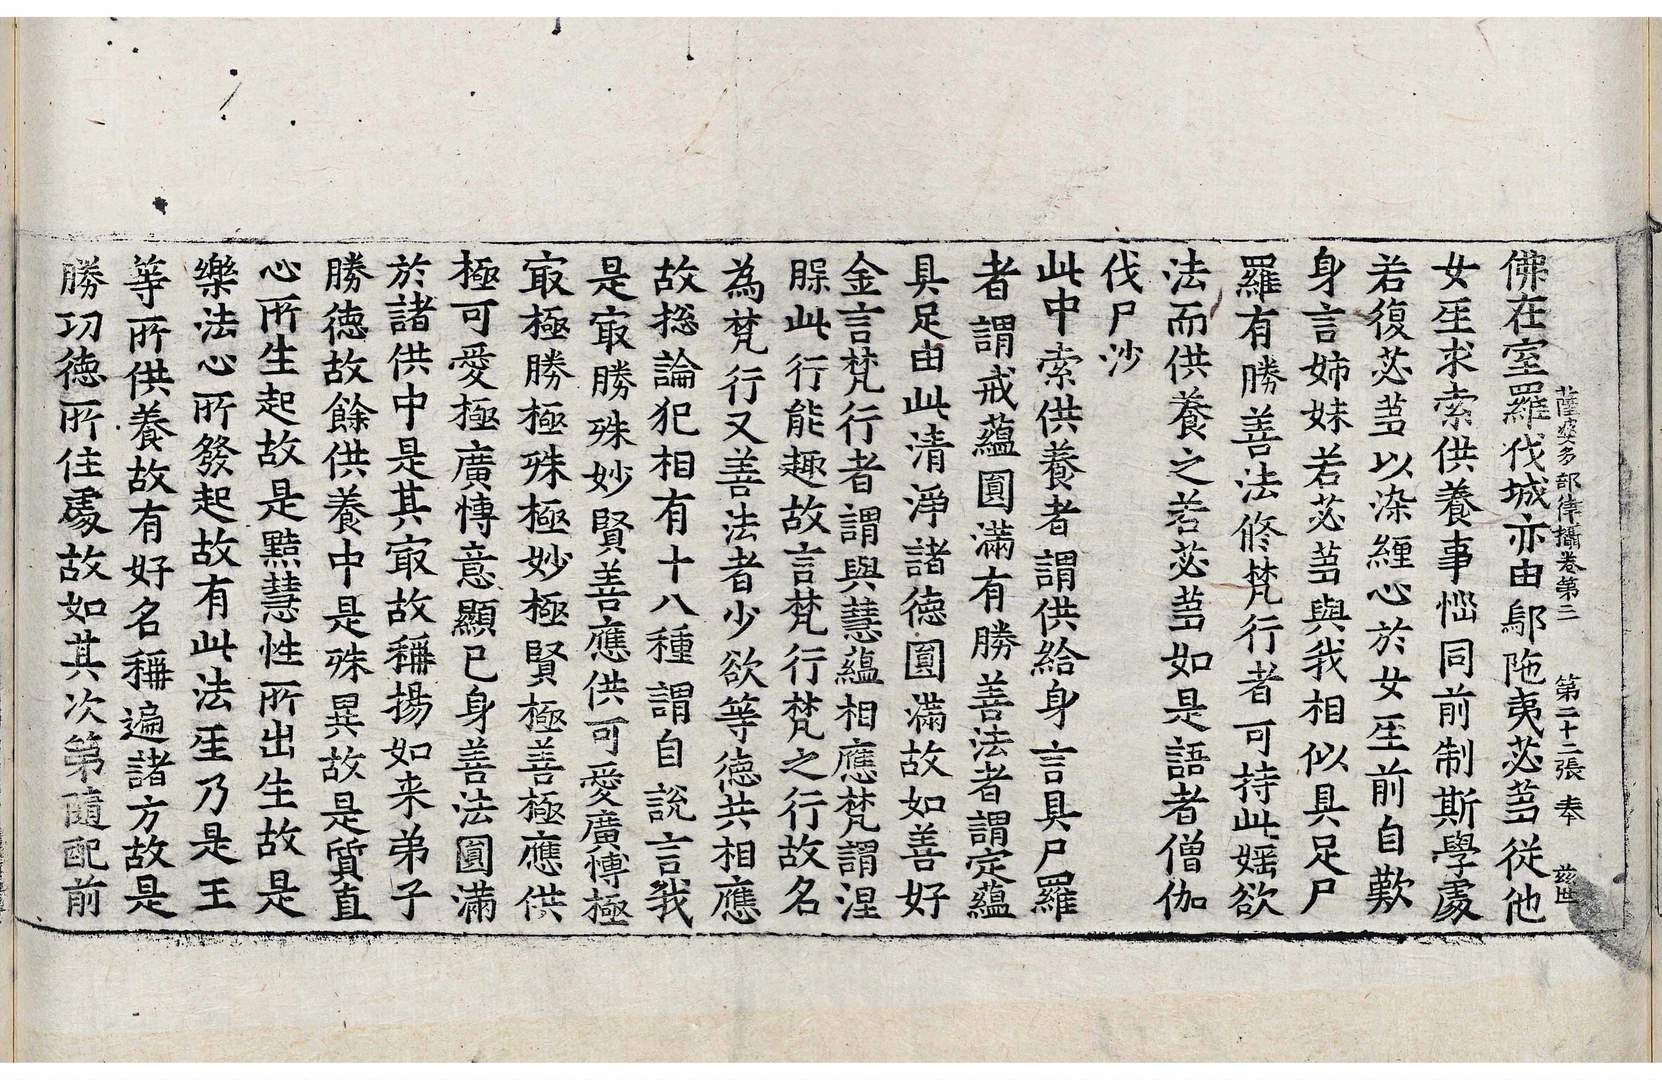 薩婆多部律攝卷第三 第二十二張 奉 玆世
佛在室羅伐城亦由鄔陁夷苾𦬇從他
女𤯔求索供養事惱同前制斯學䖏
若復苾𦬇以染纏心於女𤯔前自歎
身言姉妹若苾𦬇與我相似具足尸
羅有勝善法修梵行者可持此婬欲
法而供養之若苾𦬇如是語者僧伽
伐尸沙
此中索供養者謂供給身言具尸羅
者謂戒蘊圓滿有勝善法者謂定蘊
具足由此清淨諸德圓滿故如善好
金言梵行者謂與慧蘊相應梵謂涅
槃此行能趣故言梵行梵之行故名
為梵行又善法者少欲等德共相應
故揔論犯相有十八種謂自說言我
是㝡勝殊妙賢善應供可愛廣愽極
㝡極勝極殊極妙極賢極善極應供
極可愛極廣愽意顯已身善法圓滿
於諸供中是其㝡故稱揚如来弟子
勝德故餘供養中是殊異故是質直
心所生起故是黠慧性所出生故是
樂法心所發起故有此法𤯔乃是王
等所供養故有好名稱遍諸方故是
勝功德所住䖏故如其次第隨配前